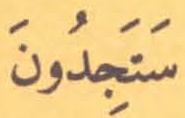 سَتَجِدُونَ